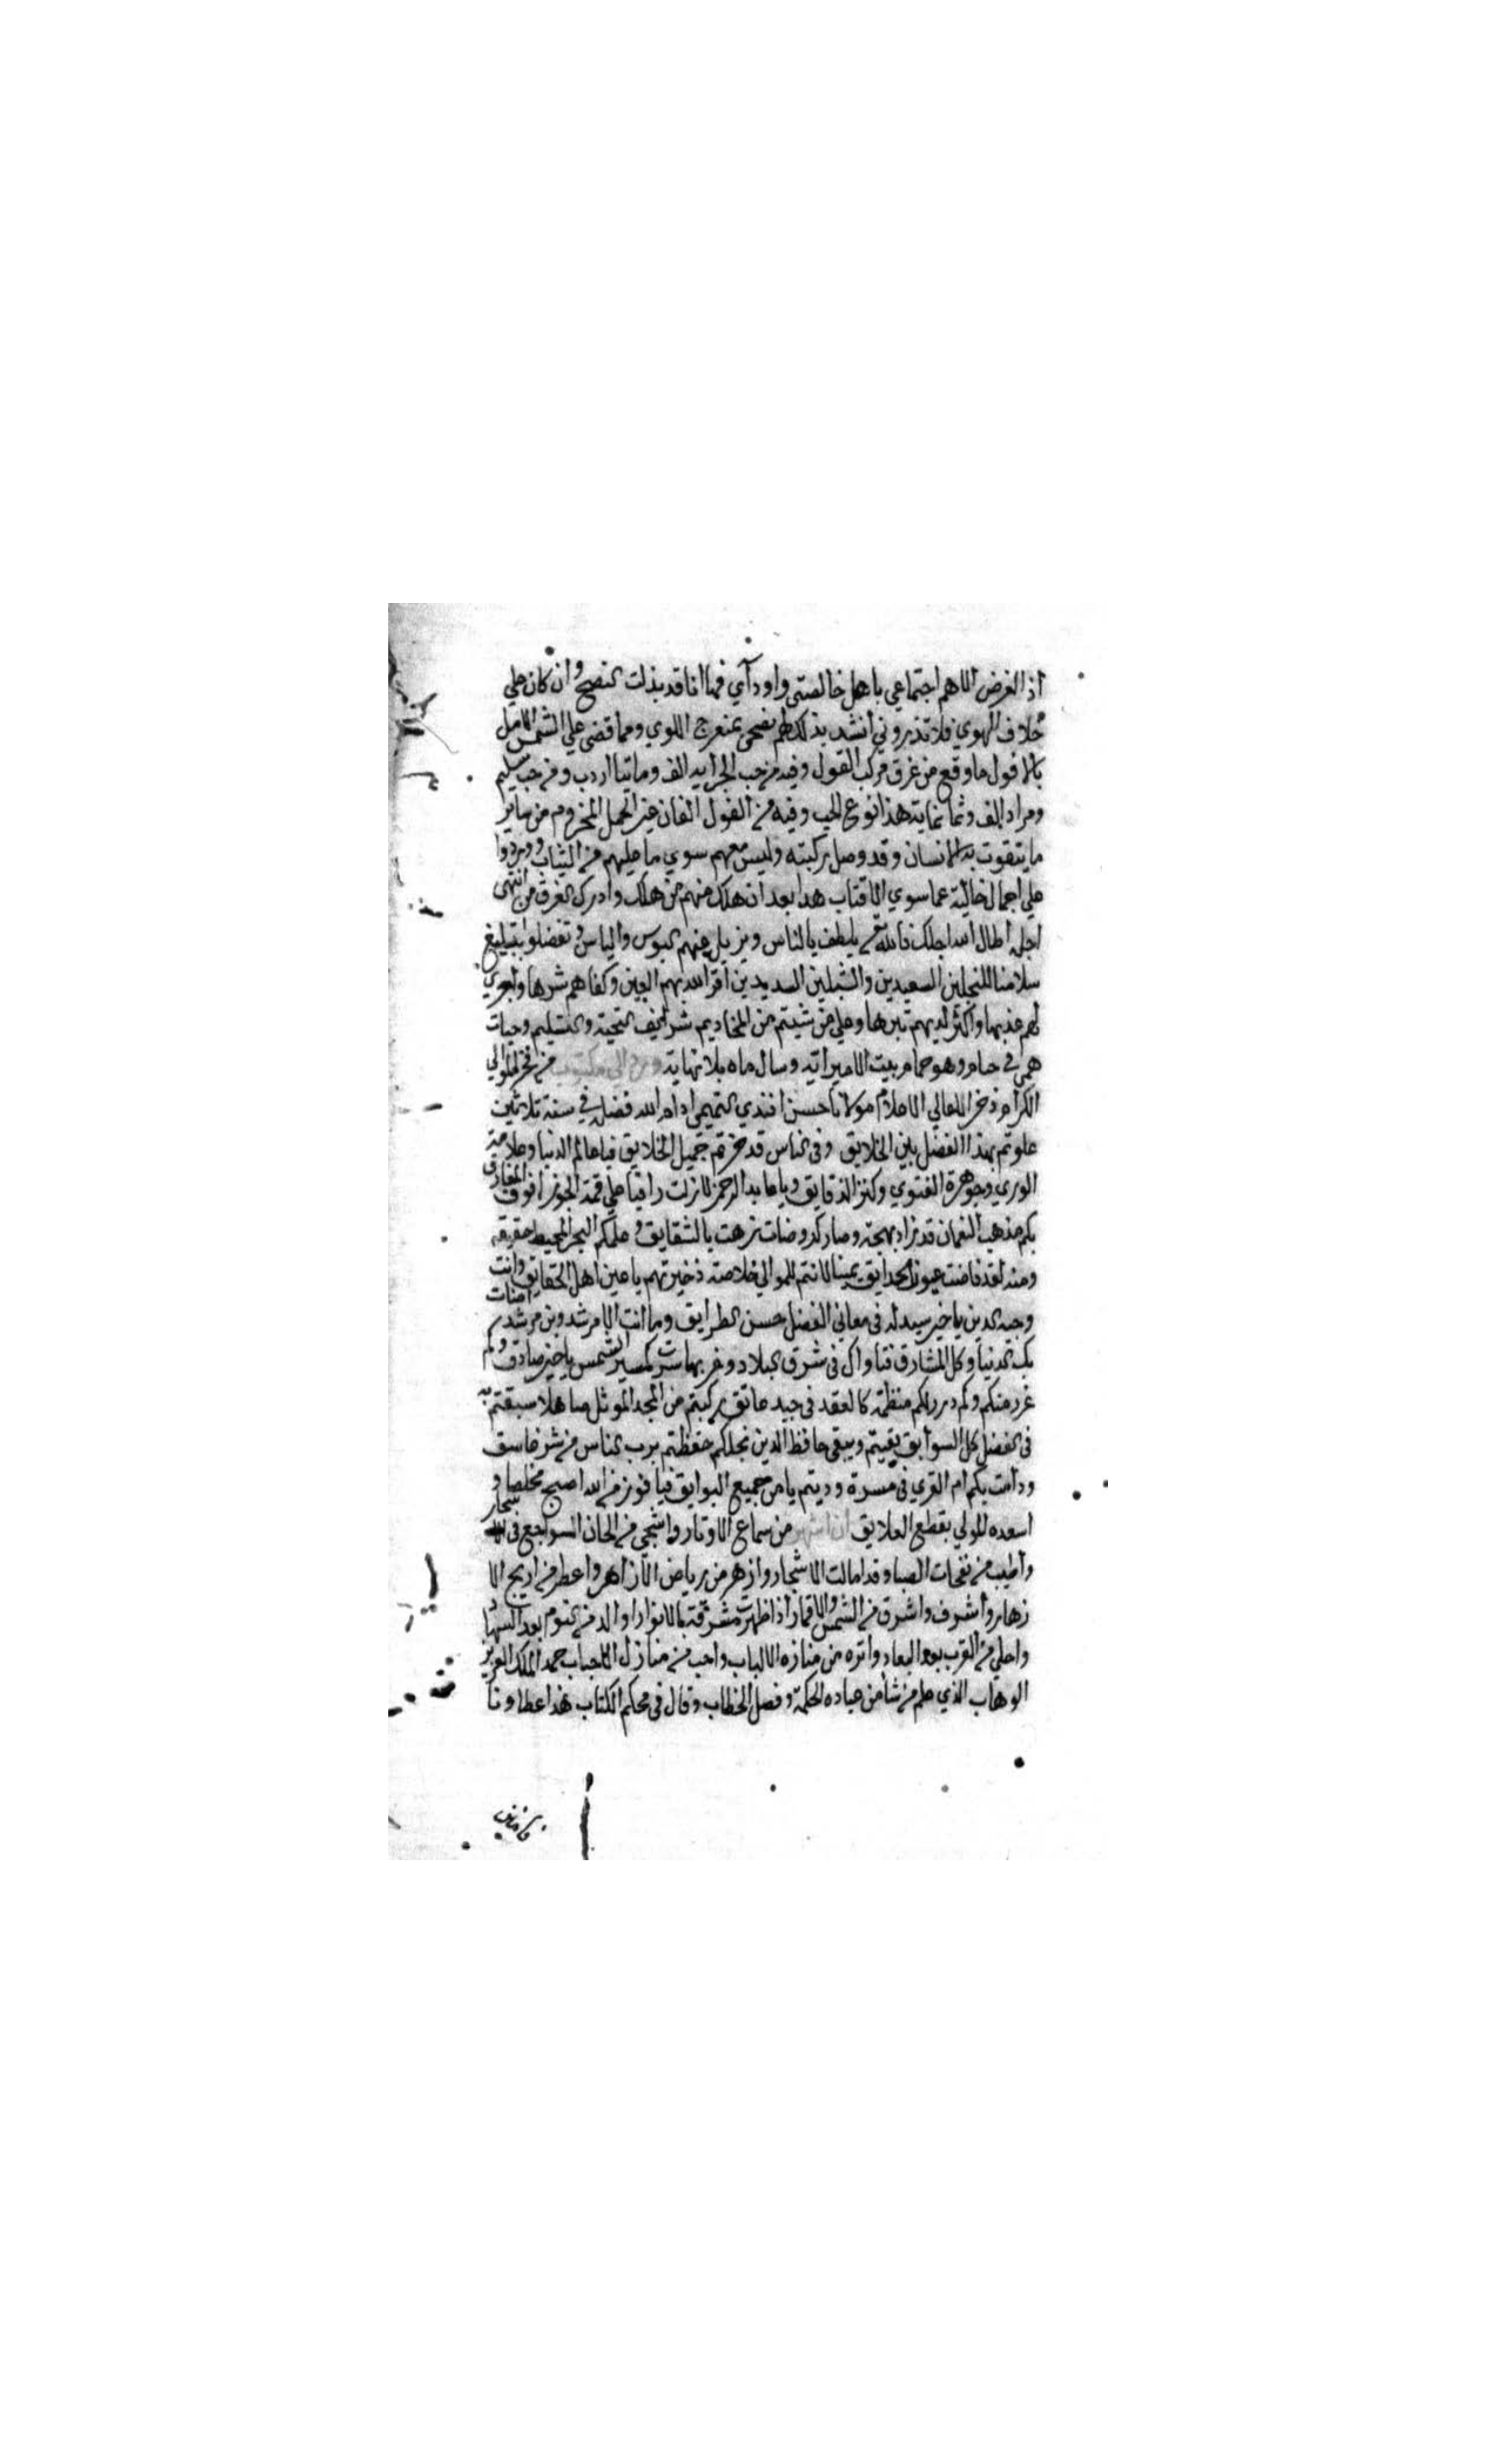 اذ الغرض الاهم اجتماعي باهل خالصتي واودآي فها انا قد بذلت النصح وان كان علي
خلاف الهوي فلا تذروني انشد بذلكم نصحي بمنعرج اللوي ومما قضي علي الشمس الامل
بالافول ما وقع من غرق مركب الفول وفيه من حب الجرايه الف وماتيا اردب ومن حب سليم
ومراد الف وثمانماية هذا نوع الحب وفيه من الفول الفان غير الحمل المخزوم من ساير
ما يتقوت به الانسان وقد وصل ركبته وليس معهم سوي ما عليهم من الثياب ووردوا
علي اجمال خالية عما سوي الاقتاب هذا بعد ان هلك منهم من هلك وادرك الغرق من انتهي
اجله اطال الله اجلك فالله تعالي يلطف بالناس ويزيل عنهم البوس والباس وتفضلوا بتبليغ
سلامنا للنجلين السعيدين والشبلين السديدين اقر الله بهم العين وكفاهم شرها واجري
لهم عذبها واكثر لديهم تبرها وعلي من شيتم من المخاديم شرايف التحية والتسليم وحيات
همي في حام وهو حمام بيت الاميراتيه وسال ماه بلا نهاية وورد الي مكتوب من فخر الموالي
الكرام ذخر المعالي الاعلام مولانا حسن افندي التميمي ادام الله فضله في سنة ثلاثين
علوتم بهذا الفضل بين الخلايق وفي الناس قد حزتم جميل الخلايق فيا عالم الدنيا وعلامة
الوري وجوهرة الفتوي وكنز الدقايق ويا عابد الرحمن لازلت راقيا علي قمة الجوزا فوق المفارق
بكم مذهب النعمان قد زاد بهجة وصار كروضات زهت بالشقايق وعلمكم البحر المحيط حقيقه
ومنه لقد فاضت عيون الحدايق يمينا لانتم للموالي خلاصة ذخيرتهم يا عين اهل الحقايق وانت
وجيه الدين يا خير سيد له في معاني الفضل حسن الطرايق وما انت الا مرشد وبن مرشد اضات
بك الدنيا وكل المشارق فتاواك في شرق البلاد وغربها سرت كمسير الشمس يا خير صادق وكم
غرر منكم وكم درر لكم منظمة كالعقد في جيد عاتق ركبتم من المجد الموثل صاهلا سبقتم به
في الفضل كل السوابق بقيتم ويبقي حافظ الدين نجلكم حفظتم برب الناس من شر غاسق
ودامت بكم ام القري في مسرة وديتم يا من جميع البوايق فيا فوز من الله اصبح مخلصا و
اسعده المولي بقطع العلايق ان اشهي من سماع الاوتار واشجي من الحان السواجع في الاسحار
واطيب من نفحات الصبا وقد امالت الاشجار وازهر من رياض الازاهر واعطر من اريج الا
زهار واشرف واشرق من الشمس والاقمار اذا ظهرت مشرقة بالانوار او الذ من النوم بعد السهاد
واحلي من القرب بعد البعاد وانزه من منازه الالباب واحب من منازل الاحباب حمد الملك العزيز
الوهاب الذي علم من شا من عباده الحكمة وفصل الخطاب وقال في محكم الكتاب هذا عطاونا
فامنن